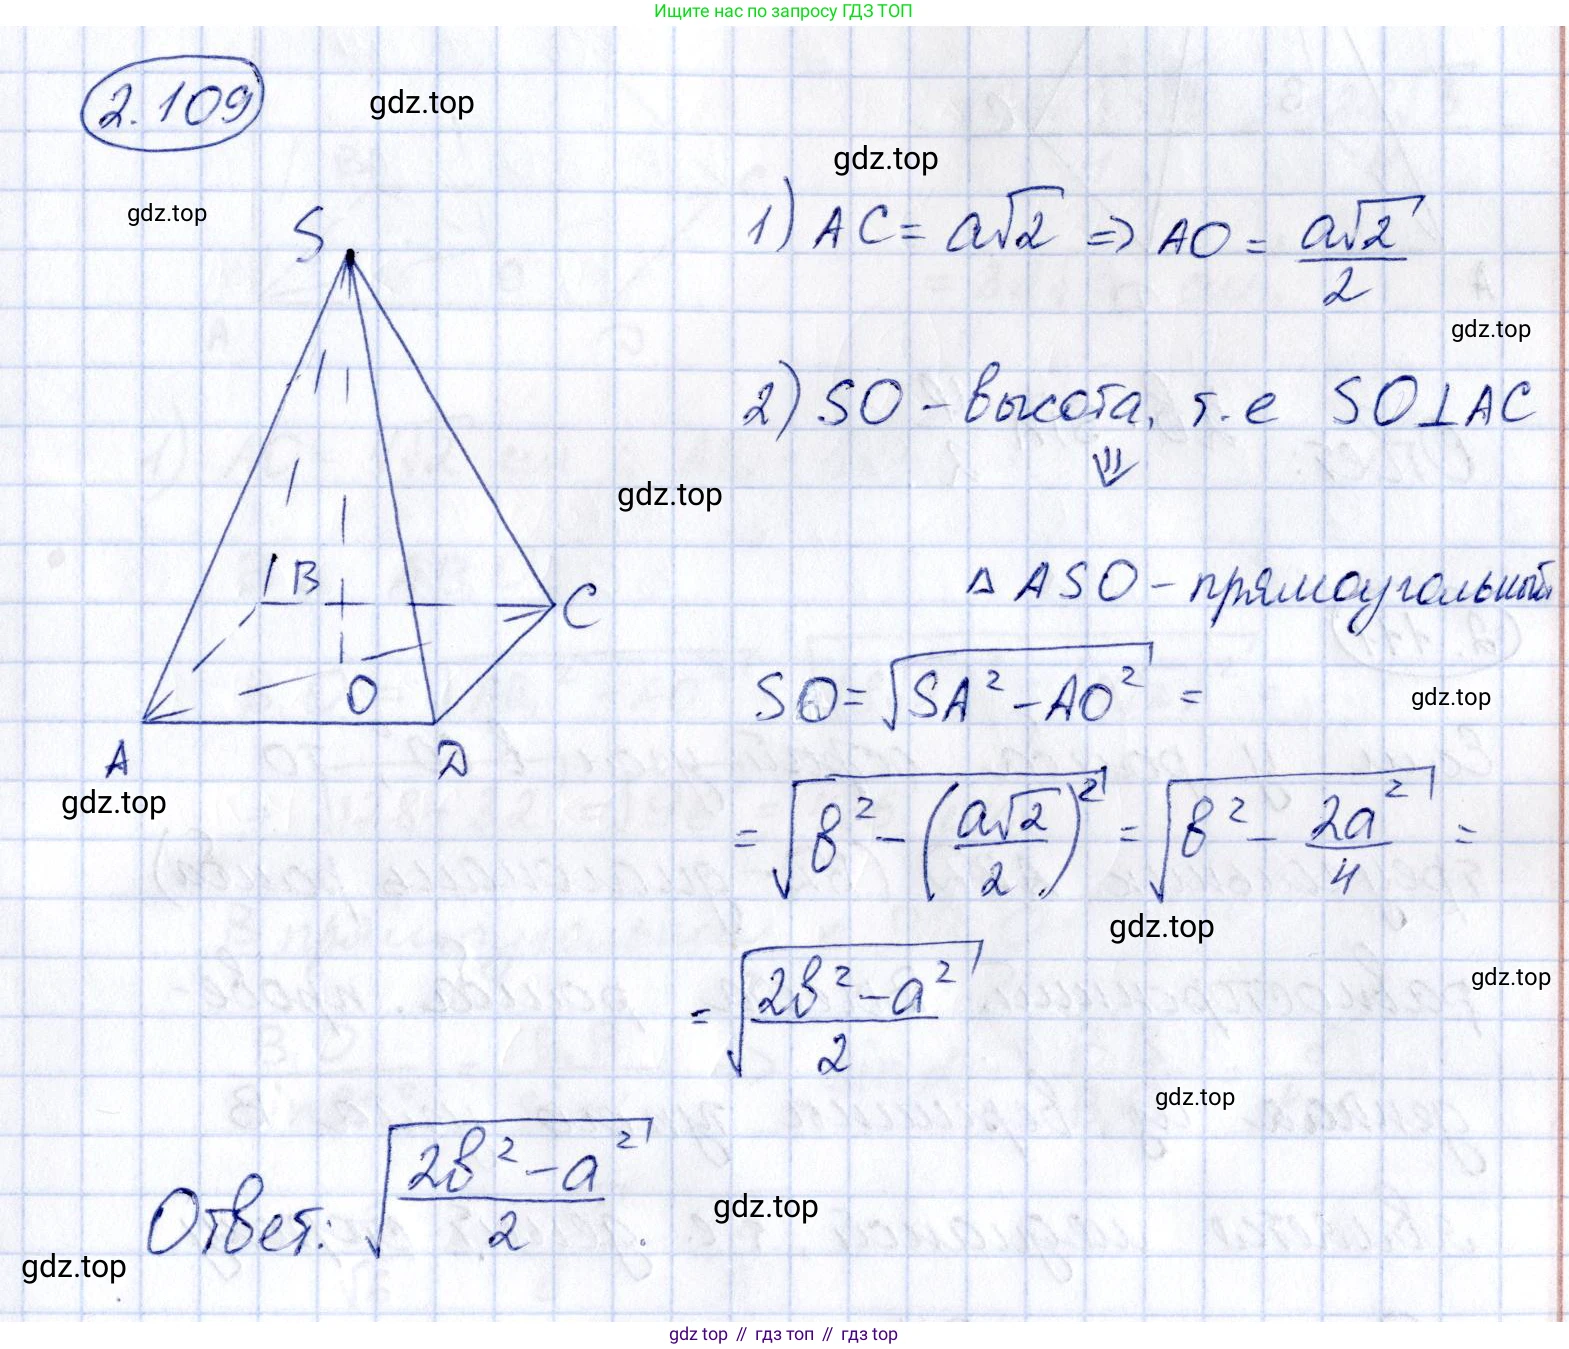 Ищите нас по запросу ГДЗ ТОП
2.109
gdz.top
gdz.top
gdz.top
S
1) AC = a√2 => AO = a√2/2
gdz.top
2) SO – высота, т.е SO⊥AC
⇓
gdz.top
B
C
△ ASO – прямоугольный
O
SO = √(SA² – AO²) =
gdz.top
A
D
gdz.top
= √(в² – (a√2/2)²) = √(в² – 2a²/4) =
gdz.top
gdz.top
= √((2в² – a²)/2)
gdz.top
Ответ: √((2в² – a²)/2).
gdz.top
gdz.top
gdz top // гдз топ // гдз top